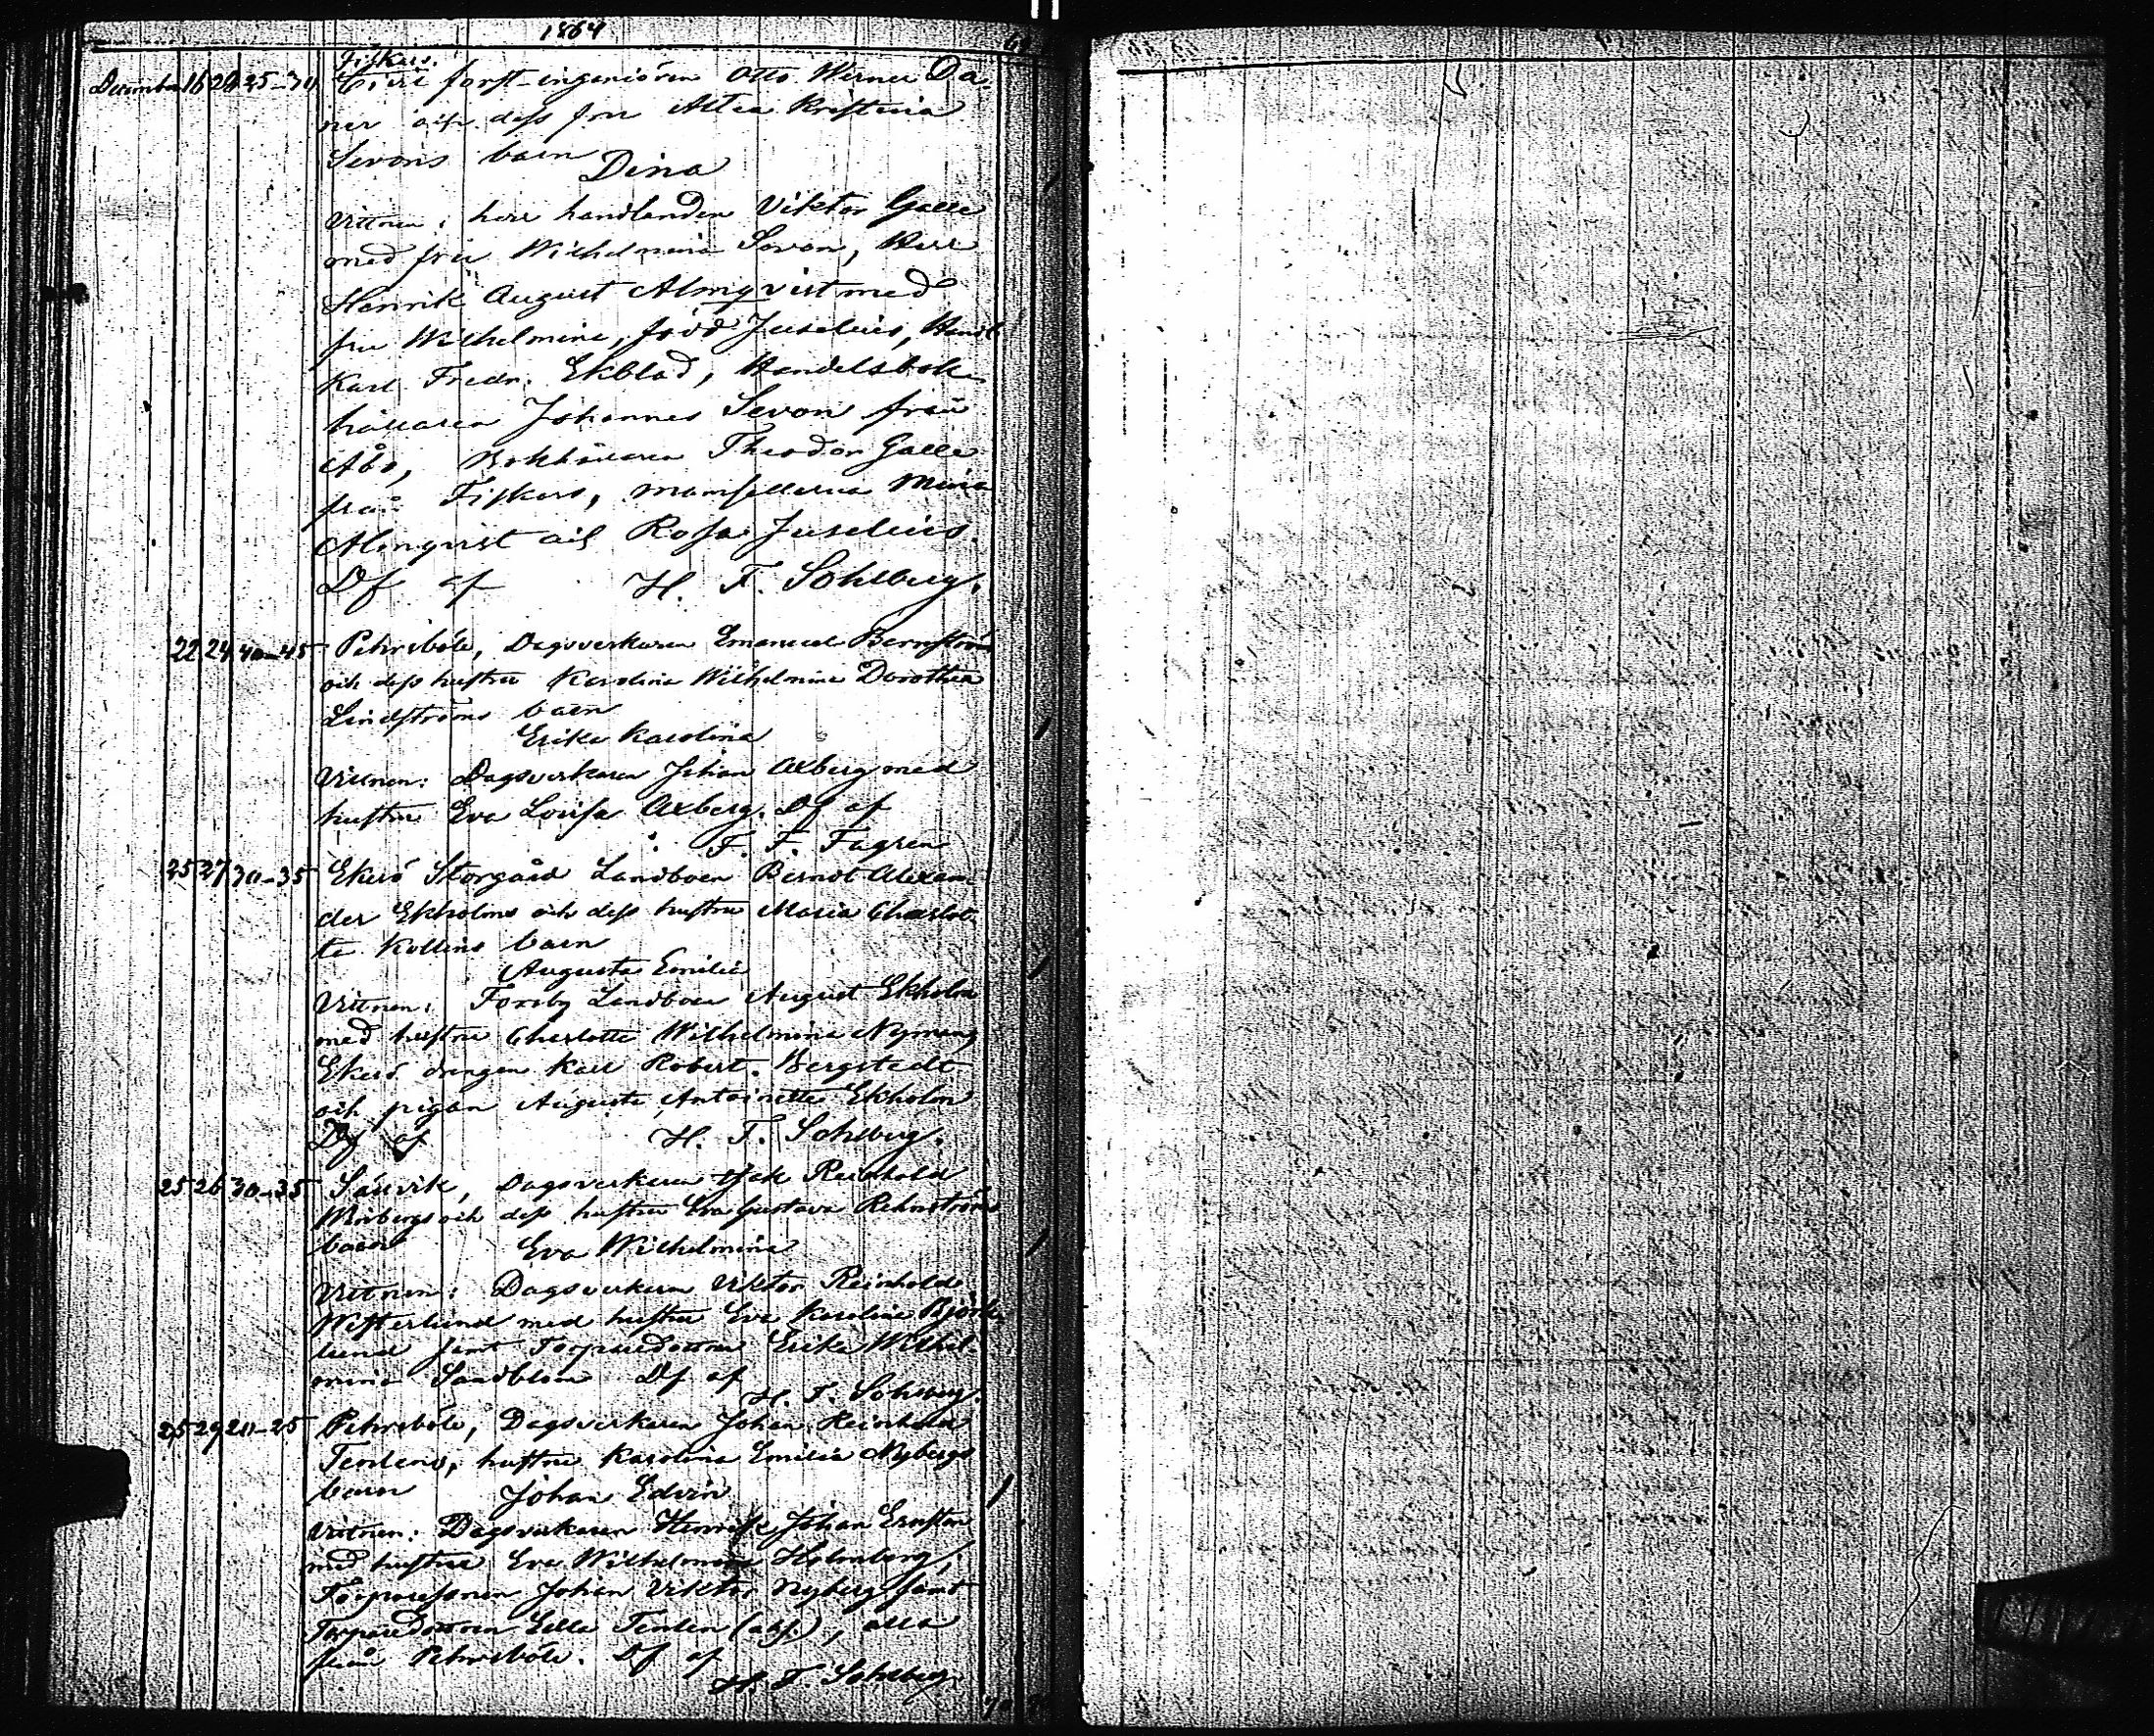 1864
Fiskars.
December 16 24 25-30 Civil forst-ingeniören Otto Werner Da-
ner och dess fru Altea Kristina
Sevons barn
Dina
Vittnen: herr handlanden Viktor Galle
med fru Wilhelmina Sevon, Herr
Henrik August Almqvist med
fru Wilhelmina, född Juselius, Handl
Karl Fredr. Ekblad, Handelsbok-
hållaren Johannes Sevon från
Åbo, Bokhållaren Theodor Galle
från Fiskars, mamsellerna Mina
Almqvist och Rosa Juselius.
Df af H. F. Sohlberg.
22 24 40-45 Pehrsböle, Dagsverkaren Emanuel Bernström
och dess hustru Karolina Wilhelmina Dorothea
Lindströms barn
Erika Karolina
Vittnen: Dagsverkaren Johan Axberg med
hustru Eva Lovisa Axberg. Df af
F. F. Fagren
25 27 30-35 Ekerö Storgård Landboen Berndt Alexan-
der Ekholms och dess hustru Maria Charlot-
ta Kollins barn
Augusta Emilia
Vittnen: Forsby Landboen August Ekholm
med hustru Charlotta Wilhelmina Nyman,
Ekerö drengen Karl Robert Bergstedt
och pigan Augusta Antoinetta Ekholm
Df af H. F. Sohlberg.
25 26 30-35 Sällvik, Dagsverkaren Isak Reinhold
och dess hustru Eva Gustava Rehnströms
barn Eva Wilhelmina
Vittnen: Dagsverkaren Viktor Reinhold
Westerlund med hustru Eva Karolina Björk-
lund samt Torparedottern Erika Wilhel-
mina Sandblom Df af
H. F. Sohlberg.
25 29 20-25 Pehrsböle, Dagsverkaren Johan Reinhold
Tenlens, hustru Karolina Emilia Nybergs
barn Johan Edvin
Vittnen: Dagsverkaren Henrik Johan Ernsten
med hustru Eva Wilhelmina Holmberg,
Torparesonen Johan Viktor Nyberg samt
Torparedottren Tenlen, alla
från Pehrsböle. Df af
H. F. Sohlberg.